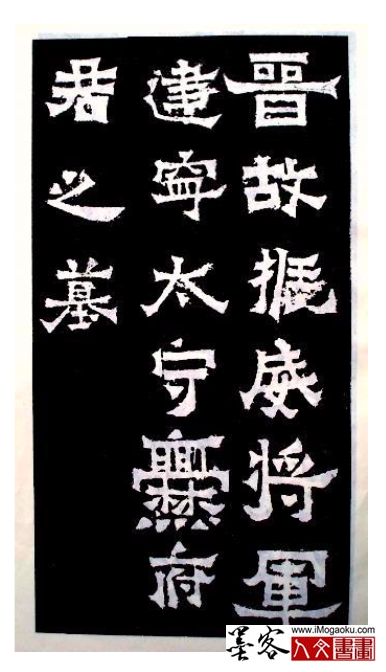 晉故振威將軍
建寧太守爨府
君之墓
www.iMogaoku.com
墨客
人文書畫